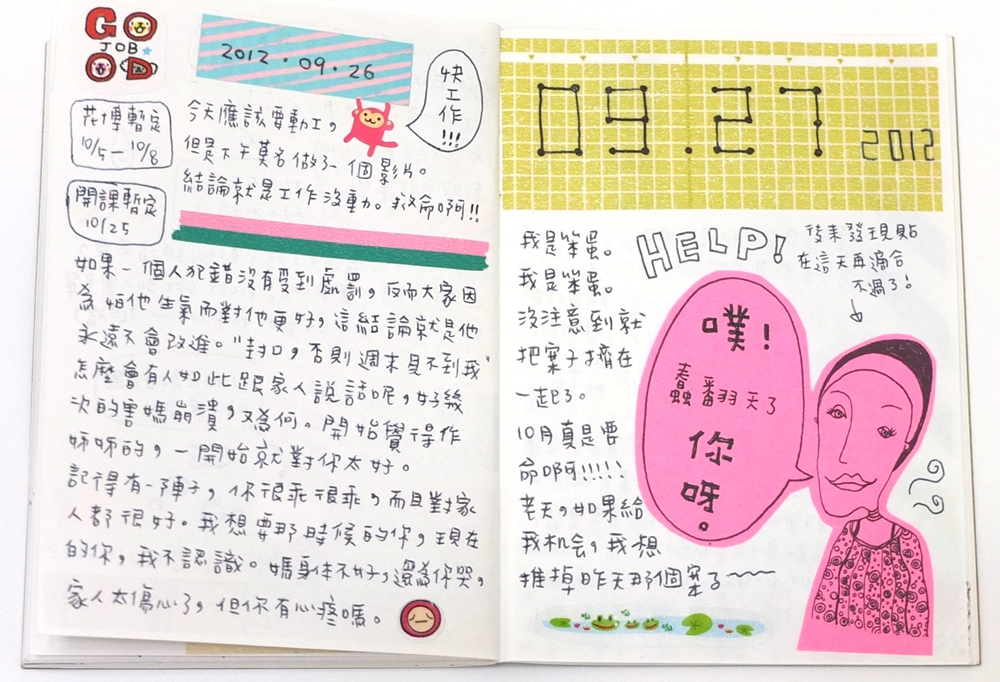 GOOD
JOB
2012.09.26
快
工
作
!!!
花博暫定
10/5-10/8
開課暫定
10/25
今天應該要動工,
但是下午莫名做了一個影片。
結論就是工作沒動。救命啊!!
如果一個人犯錯沒有受到處罰,反而大家因
為煩他生氣而對他更好,這結論就是他
永遠不會改進。"封口,否則週末見不到我"
怎麼會有人如此跟家人說話呢,好幾
次的害媽崩潰,又為何。開始覺得作
姊姊的,一開始就對你太好。
記得有一陣子,你很乖很乖,而且對家
人都很好。我想要那時候的你,現在
的你,我不認識。媽身体不好,還為你哭,
家人太傷心了,但你有心疼嗎。
09.27
2012
我是笨蛋。
我是笨蛋。
沒注意到就
把案子擠在
一起了。
10月真是要
命啊!!!!!
老天,如果給
我机会,我想
推掉昨天那個案了~~~
HELP!
後來發現貼
在這天再適合
不過了!
噗!
蠢翻天了
你
呀。